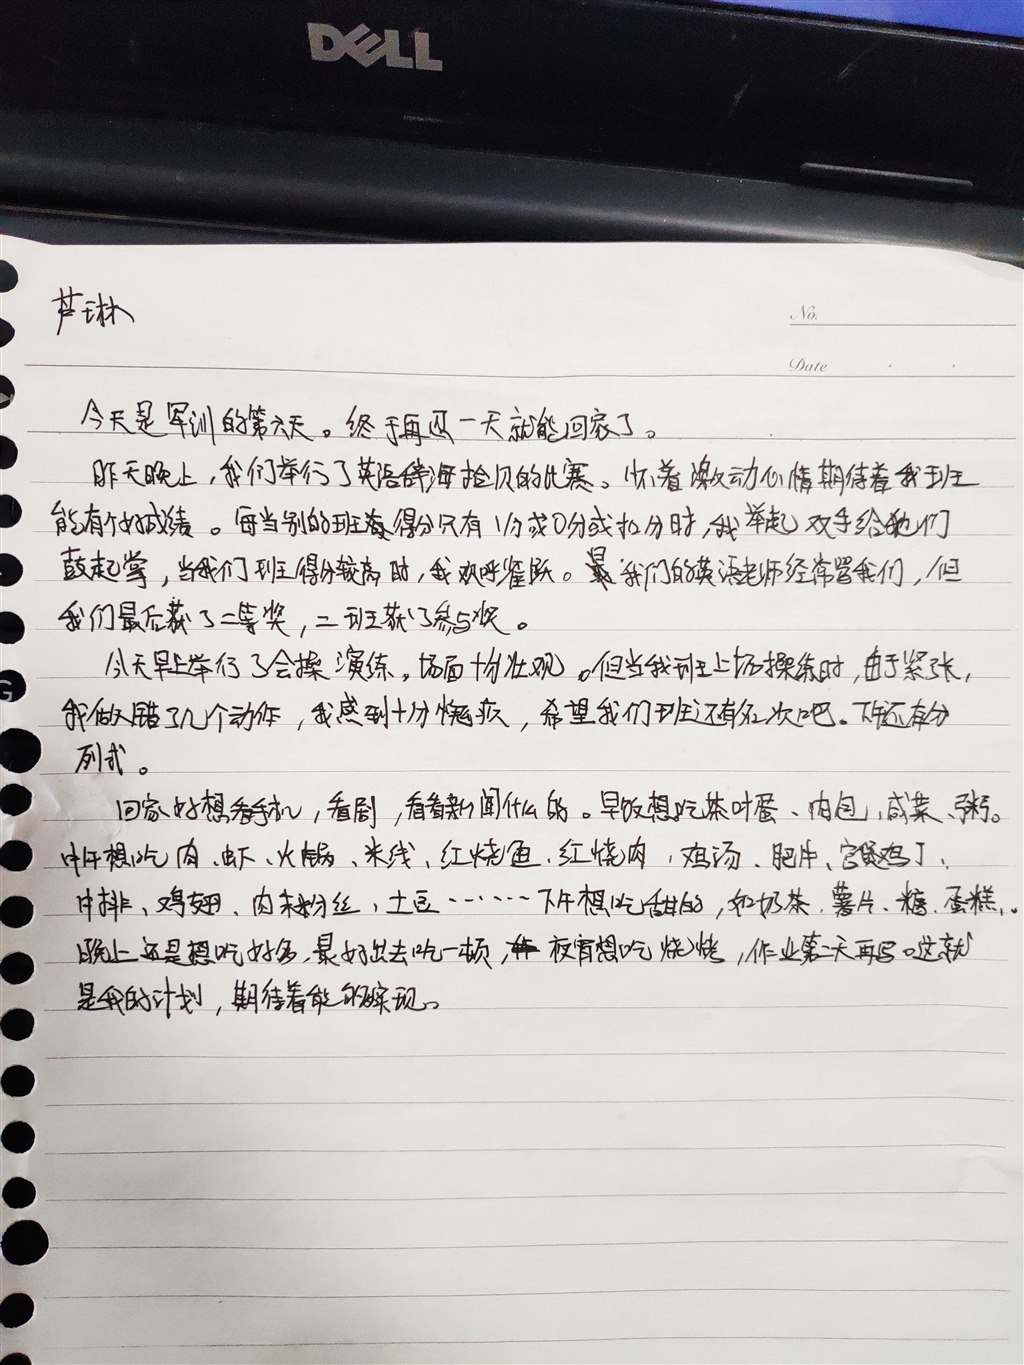 DELL
芦琳
No.
Date
今天是军训的第六天。终于再过一天就能回家了。
昨天晚上，我们举行了英语辞海拾贝的比赛。怀着激动心情期待着我班
能有个好成绩。每当别的班得分只有1分或0分或扣分时，我举起双手给他们
鼓起掌，当我们班得分较高时，我欢呼雀跃。我们的英语老师经常骂我们，但
我们最后获了二等奖，二班获了参与奖。
今天早上举行了会操演练。场面十分壮观。但当我班上场操练时，由于紧张，
我做错了几个动作，我感到十分愧疚，希望我们班还有名次吧。下午还有分
列式。
回家好想看手机，看剧，看看新闻什么的。早饭想吃茶叶蛋、肉包，咸菜、粥。
中午想吃肉、虾、火锅、米线、红烧鱼、红烧肉，鸡汤、肥牛、宫保鸡丁、
牛排、鸡翅、肉末粉丝、土豆……下午想吃甜的，如奶茶、薯片、糖、蛋糕。
晚上还是想吃好多，最好出去吃一顿，夜宵想吃烧烤，作业第二天再写。这就
是我的计划，期待着能够实现。